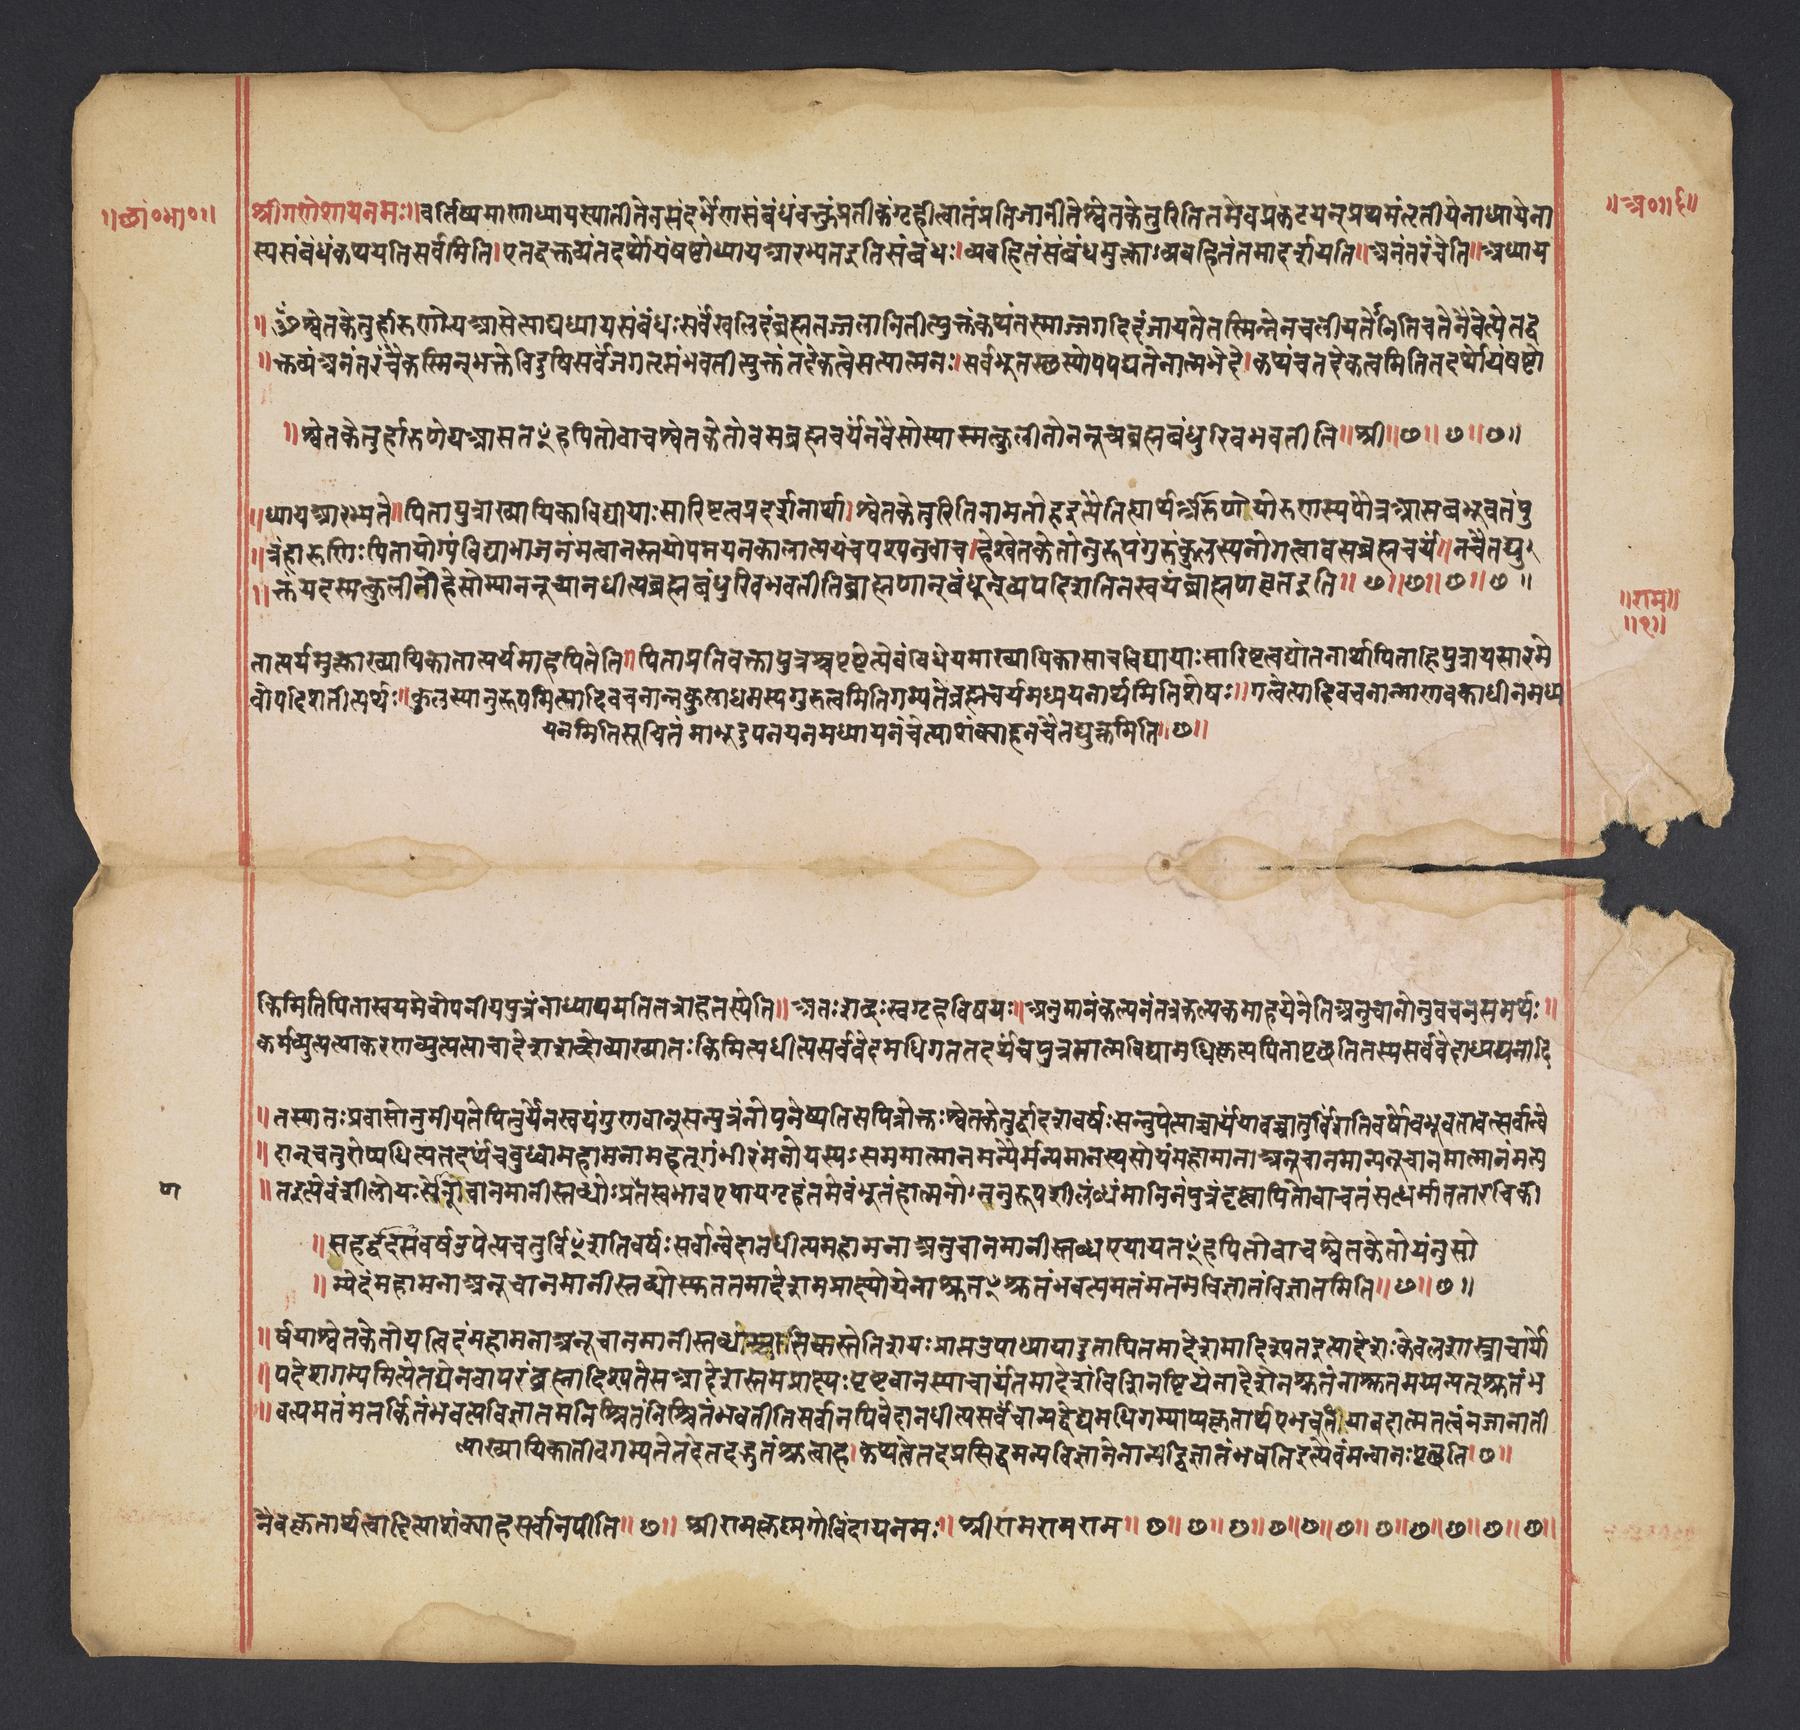 ॥छां०भा०॥
॥अ०॥६॥
श्रीगणेशायनमः॥वर्तिष्यमाणाध्यायस्यातीतेनसंदर्भेणसंबंधंवक्तुंप्रतीकंगृहीत्वातंप्रतिजानीतेश्वेतकेतुरितितमेवप्रकटयन्प्रथमंतृतीयेनाध्यायेना
स्यसंबंधंकथयतिसर्वमिति।एतद्वक्तव्यंतदर्थोयंषष्टोध्यायआरभ्यतइतिसंबंधः।व्यवहितंसंबंधमुक्त्वाऽव्यवहितंतमादर्शयति॥अनंतरंचेति॥अध्याय
॥ॐश्वेतकेतुर्हारुणेयआसेत्याद्यध्यायसंबंधःसर्वंखल्विदंब्रह्मतज्जलानितीत्युक्तंकथंतस्माज्जगदिदंजायतेतस्मिन्नेवचलीयतेनितिचतेनैवेत्येतद्व
॥क्तव्यंअनंतरंचैकस्मिन्भुक्तेविदुषिसर्वंजगत्तृप्तंभवतीत्युक्तंतदेकत्वेसत्यात्मनः।सर्वभूतस्थस्योपपद्यतेनात्मभेदे।कथंचतदेकत्वमितितदर्थोयंषष्टो
॥श्वेतकेतुर्हारुणेयआसतꣳहपितोवाचश्वेतकेतोवसब्रह्मचर्यंनवैसोम्यास्मत्कुलीनोननूच्यब्रह्मबंधुरिवभवतीति॥श्री॥७॥७॥७॥
॥ध्यायआरभ्यते॥पितापुत्राख्यायिकाविद्यायाःसारिष्टत्वप्रदर्शनार्था।श्वेतकेतुरितिनामतोहइत्यैतिह्यार्थआरुणेयोरुणस्यपौत्रआसबभूवतंपु
॥त्रंहारुणिःपितायोग्यंविद्याभाजनंमत्वानस्तयोपनयनकालात्ययंचपश्यनुवाच।हेश्वेतकेतोनुरूपंगुरुंकुलस्यनोगत्वावसब्रह्मचर्यं॥नचैतद्यु
॥क्तंयदस्मत्कुलीनोहेसोम्याननूच्यानधीत्यब्रह्मबंधुरिवभवतीतिब्राह्मणान्बंधून्व्यपदिशतिनस्वयंब्राह्मणवृत्तइति॥७॥७॥७॥७॥
॥राम॥
॥१॥
तात्पर्यमुक्त्वाख्यायिकातात्पर्यमाहपितेति॥पिताप्रतिवक्तापुत्रश्चपृष्टेत्येवंविधेयमाख्यायिकासाचविद्यायाःसारिष्टत्वद्योतनार्थापिताहिपुत्रायसारमे
वोपदिशतीत्यर्थः॥कुलस्यानुरूपमित्यादिवचनान्नकुलाधमस्यगुरुत्वमितिगम्यतेब्रह्मचर्यमध्ययनार्थमितिशेषः॥गत्वेत्यादिवचनान्माणवकाधीनमध्य
यनमितिसूचितंमाभूदुपनयनमध्यायनंचेत्याशंक्याहनचैतद्युक्तमिति॥७॥
किमितिपितास्वयमेवोपनीयपुत्रंनाध्यापयतितत्राहतस्येति॥अतःशब्दःस्वगृहविषयः॥अनुमानंकल्पनंतत्रकल्पकमाहयेनेतिअनुचानोनुवचनसमर्थः॥
कर्मव्युत्पत्त्याकरणव्युत्पत्त्याचादेशशब्दोव्याख्यातःकिमित्यधीत्यसर्ववेदमधिगततदर्थंचपुत्रमात्मविद्यामधिकृत्यपितापृछतितस्यसर्ववेदाध्ययनादि
॥तस्यातःप्रवासोनुमीयतेपितुर्येनस्वयंगुणवान्सन्पुत्रंनोपनेष्यतिसपित्रोक्तःश्वेतकेतुर्द्वादशवर्षःसन्नुपेत्याचार्यंयावच्चतुर्विंशतिवर्षोबभूवतावत्सर्वान्वे
॥दान्चतुरोप्यधित्यतदर्थंचबुध्वामहामनामहद्गंभीरंमनोयस्यऽसममात्मानमन्यैर्मन्यमानस्यसोयंमहामानाअनूचानमान्यनूचानमात्मानंमन्य
ण
॥तइत्येवंशीलोयःसोनूचानमानीस्तब्धोऽप्रणतस्वभावएयायगृहंतमेवंभूतंहात्मनोऽननुरूपशीलंस्तब्धंमानिनंपुत्रंदृष्ट्वापितोवाचतंसद्धर्मावतारचिकी
॥सहद्वादसवर्षउपेत्यचतुर्विꣳशतिवर्षःसर्वान्वेदानधीत्यमहामनाअनुचानमानीस्तब्धएयायतꣳहपितोवाचश्वेतकेतोयंनुसो
॥म्येदंमहामनाअनूचानमानीस्तब्धोस्युततमादेशमप्राक्ष्योयेनाश्रुतꣳश्रुतंभवत्यमतंमतमविज्ञातंविज्ञातमिति॥७॥७॥
॥र्षयाश्वेतकेतोयत्विदंमहामनाअनूचानमानीस्तब्धश्चासिकस्तेतिशयःप्राप्तउपाध्यायादुतापितमादेशमादिश्यतइत्यादेशःकेवलशास्त्राचार्यो
॥पदेशगम्यमित्येतद्येनवापरंब्रह्मादिश्यतेसआदेशस्तमप्राक्ष्यःपृष्टवानस्याचार्यंतमादेशंविशिनष्टियेनादेशेनश्रुतेनाश्रुतमप्यन्यत्श्रुतंभ
॥वत्यमतंमतर्कितंभवत्यविज्ञातमनिश्चितंनिश्चितंभवतीतिसर्वानपिवेदानधीत्यसर्वंचान्यद्वेद्यमधिगम्याप्यकृतार्थएवभवतियावदात्मतत्वंनजानाती
त्याख्यायिकातोवगम्यतेतदेतदद्भुतंश्रुत्वाह।कथंत्वेतदप्रसिद्धमन्यविज्ञानेनान्यद्विज्ञातंभवतिइत्येवंमन्वानःपृछति।७॥
नैवकृतार्थत्वादित्याशंक्याहसर्वानपीति॥७॥श्रीरामकृष्णगोविंदायनमः॥श्रीरामरामराम॥७॥७॥७॥७॥७॥७॥७॥७॥७॥७॥७॥